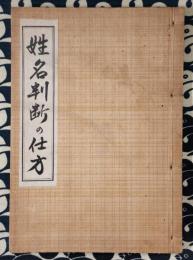 姓名判断の仕方